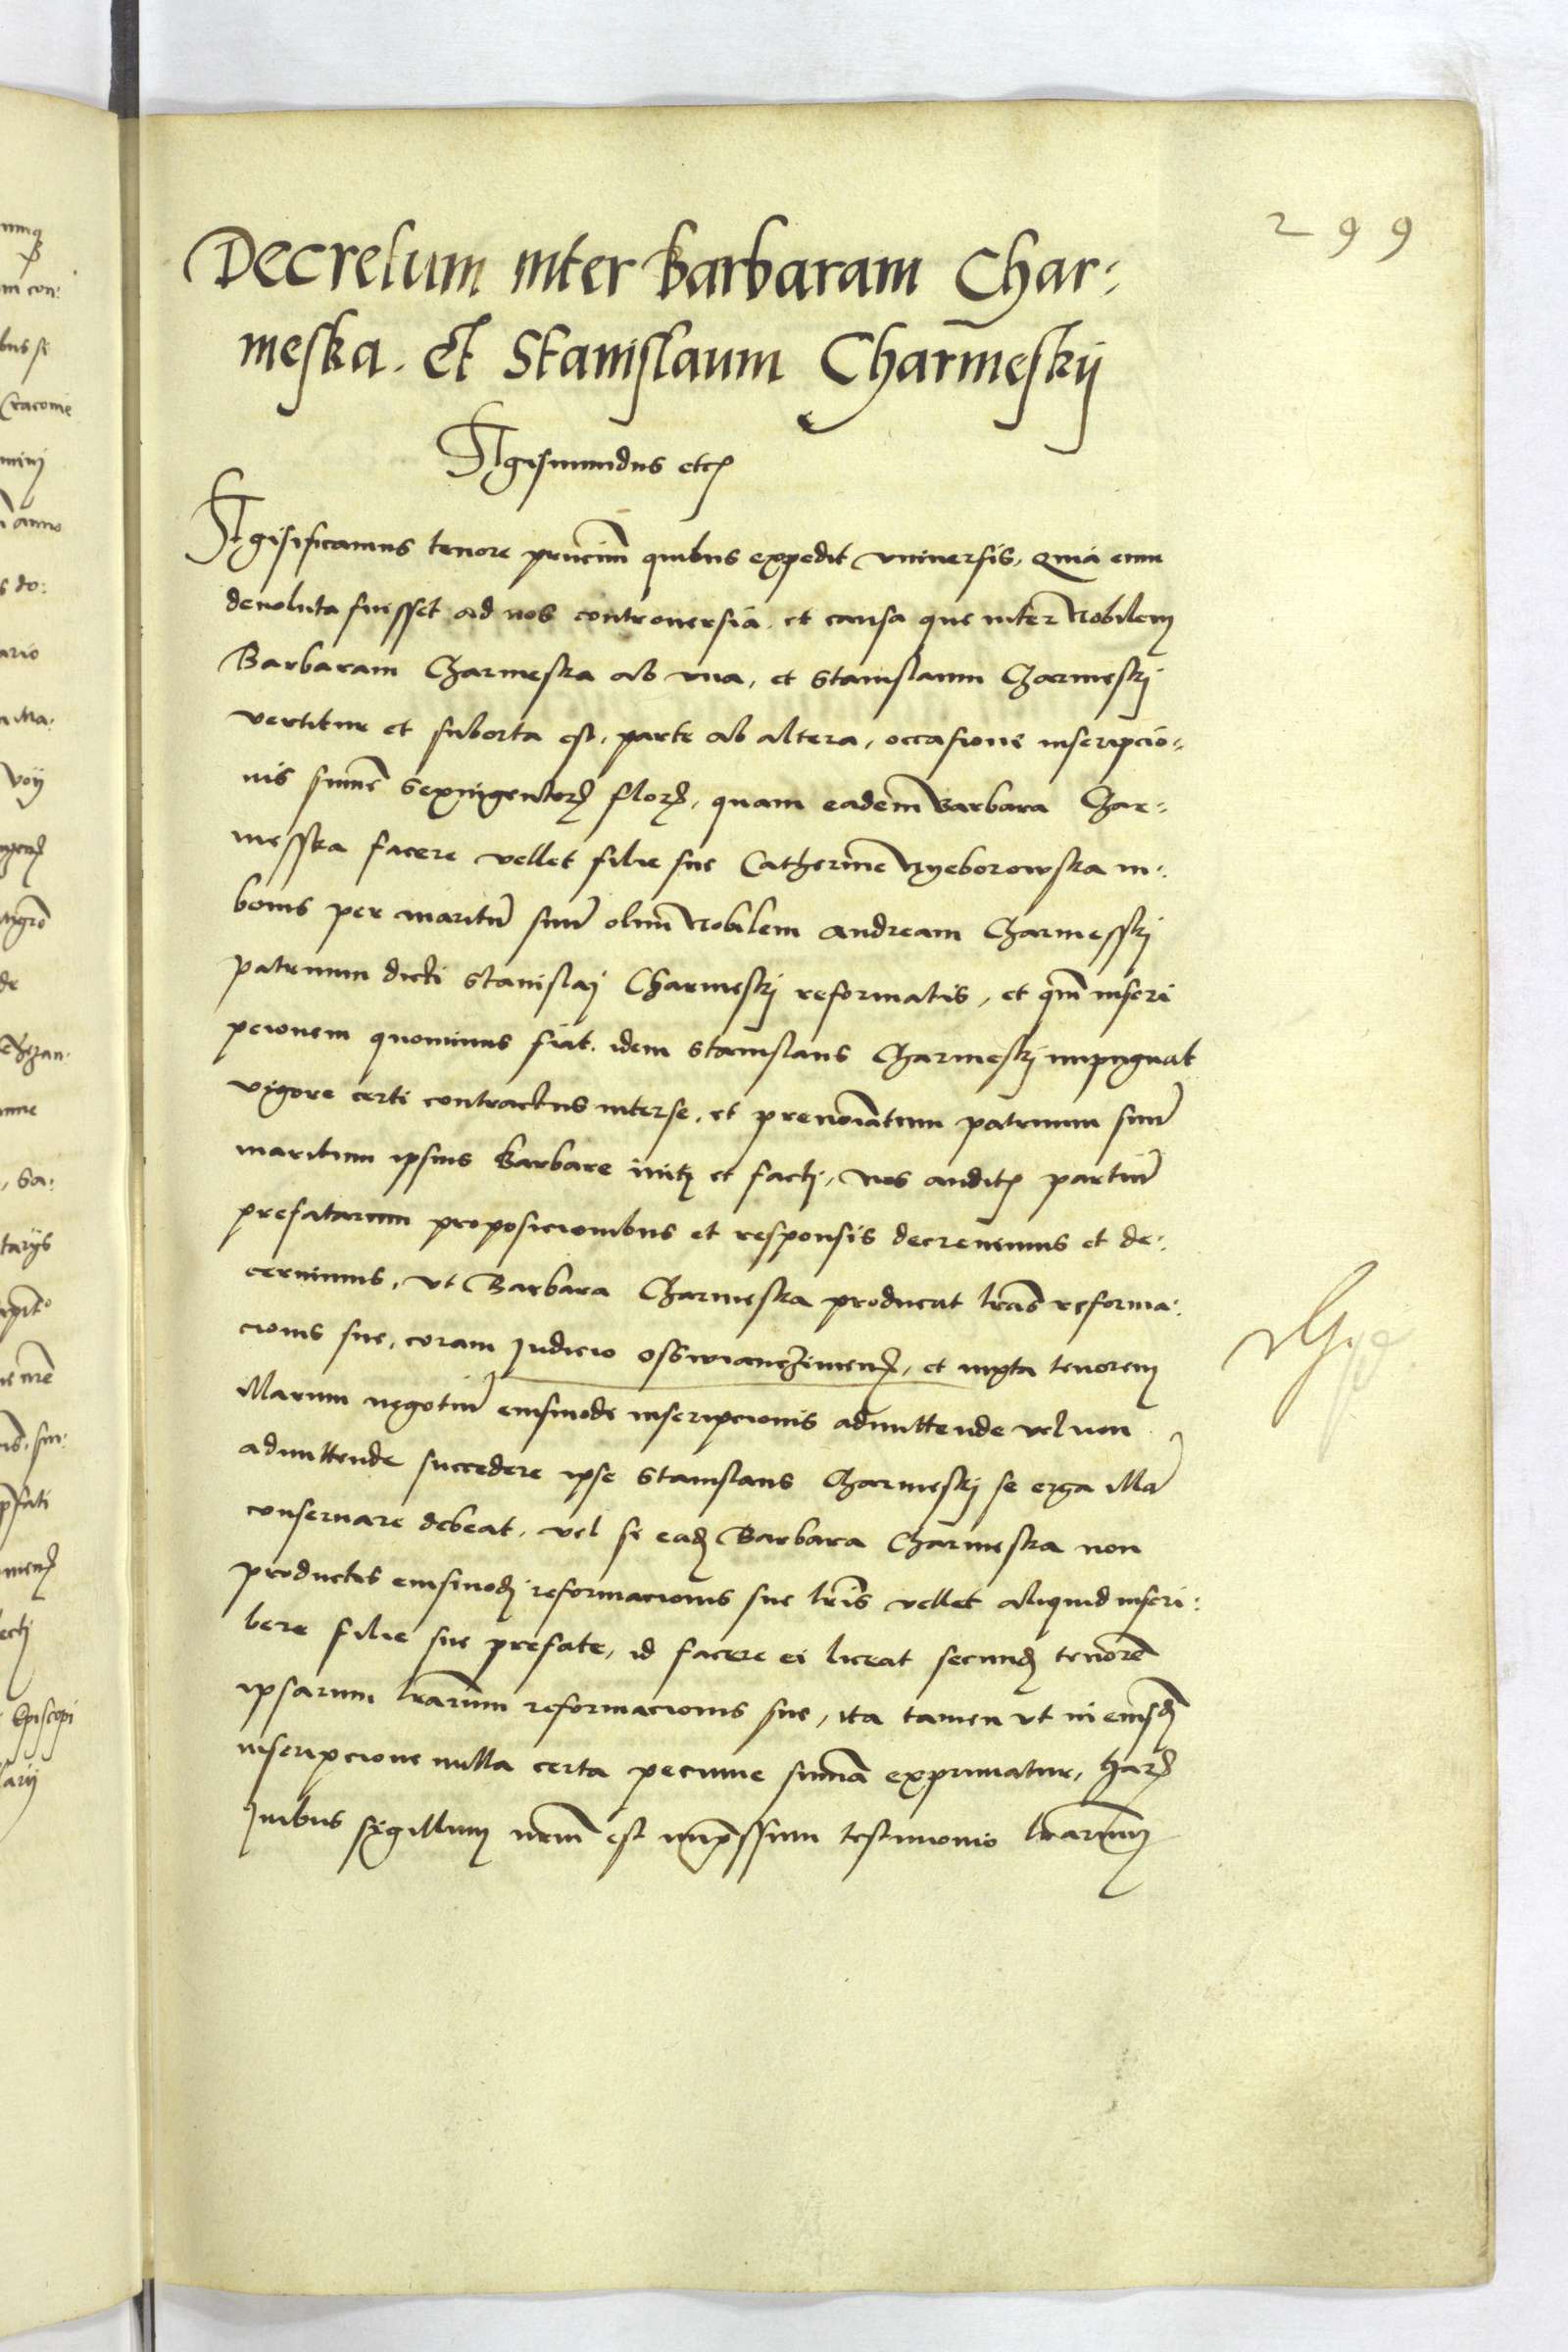 299
Decretum inter Barbaram Char:
meska. Et Stanislaum Charmeskij
Sigismundus etc
Sigisificamus tenore pn̄cium quibus expedit vniuersis, Quia cum
deuoluta fuisset ad nos controuersia, et causa que inter Nobilem
Barbaram Charmeska ab vna, et Stanislaum Charmeskj
vertitur et suborta est, parte ab altera, occasione inscripcio:
nis summe Sexingentorꝝ florꝝ, quam eadem Barbara Char:
messka facere vellet filie sue Catherine Nyeborowska in:
bonis per maritū suū olim Nobilem Andream Charmesskj
patruum dicti Stanislaj Charmeskj reformatis, et quā inscri
pcionem quominus fiat. idem Stanislaus Charmeskj impugnat
vigore certi contractus inter se, et prenoīatum patruum suū
maritum ipsius Barbare initj et factj, Nos auditis partiū
prefatarum proposicionibus et responsis decreuimus et de:
cernimus, vt Barbara Charmeska producat lrās reforma:
cionis sue, coram Judicio Osswianczimenꝭ, et iuxta tenorem
illarum negotiū eiusmodi inscripcionis admittende vel non
admittende succedere ipse Stanislaus Charmeskj se erga illā
conseruare debeat, vel si eadꝫ Barbara Charmeska non
productis eiusmodj reformacionis sue lrīs vellet aliquid inscri:
bere filie sue prefate, id facere ei liceat secundꝫ tenorē
ipsarum lrārum reformacionis sue, ita tamen vt in eiusdꝫ
inscripcione nulla certa pecunie summa exprimatur, harꝝ
quibus sigillum nrm̄ est imp̄ssum testimonio lrārum